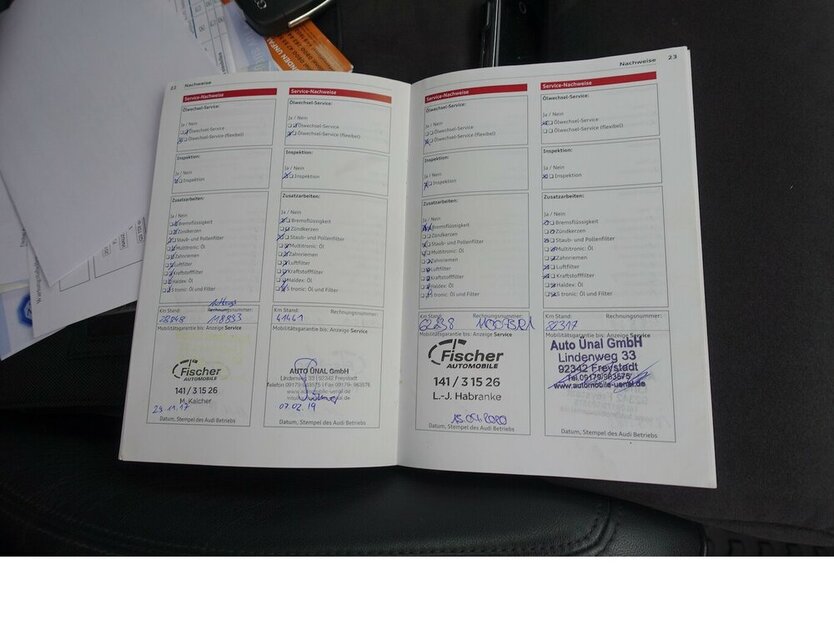 22 Nachweise
Service-Nachweise
Ölwechsel-Service:
Ja / Nein
Ölwechsel-Service
Ölwechsel-Service (flexibel)
Inspektion:
Ja / Nein
Inspektion
Zusatzarbeiten:
Ja / Nein
Bremsflüssigkeit
Zündkerzen
Staub- und Pollenfilter
Multitronic: Öl
Zahnriemen
Luftfilter
Kraftstofffilter
Haldex: Öl
S tronic: Öl und Filter
Km Stand: Rechnungsnummer:
28848 118893
Mobilitätsgarantie bis: Anzeige Service
Fischer
AUTOMOBILE
141 / 3 15 26
M. Kalcher
23.11.17
Datum, Stempel des Audi Betriebs
Service-Nachweise
Ölwechsel-Service:
Ja / Nein
Ölwechsel-Service
Ölwechsel-Service (flexibel)
Inspektion:
Ja / Nein
Inspektion
Zusatzarbeiten:
Ja / Nein
Bremsflüssigkeit
Zündkerzen
Staub- und Pollenfilter
Multitronic: Öl
Zahnriemen
Luftfilter
Kraftstofffilter
Haldex: Öl
S tronic: Öl und Filter
Km Stand: Rechnungsnummer:
41441
Mobilitätsgarantie bis: Anzeige Service
AUTO ÜNAL GmbH
Lindenweg 33 | 92342 Freystadt
07.02.19
Datum, Stempel des Audi Betriebs
Nachweise 23
Service-Nachweise
Ölwechsel-Service:
Ja / Nein
Ölwechsel-Service
Ölwechsel-Service (flexibel)
Inspektion:
Ja / Nein
Inspektion
Zusatzarbeiten:
Ja / Nein
Bremsflüssigkeit
Zündkerzen
Staub- und Pollenfilter
Multitronic: Öl
Zahnriemen
Luftfilter
Kraftstofffilter
Haldex: Öl
S tronic: Öl und Filter
Km Stand: Rechnungsnummer:
62838
Mobilitätsgarantie bis: Anzeige Service
Fischer
AUTOMOBILE
141 / 3 15 26
L.-J. Habranke
Datum, Stempel des Audi Betriebs
Service-Nachweise
Ölwechsel-Service:
Ja / Nein
Ölwechsel-Service
Ölwechsel-Service (flexibel)
Inspektion:
Ja / Nein
Inspektion
Zusatzarbeiten:
Ja / Nein
Bremsflüssigkeit
Zündkerzen
Staub- und Pollenfilter
Multitronic: Öl
Zahnriemen
Luftfilter
Kraftstofffilter
Haldex: Öl
S tronic: Öl und Filter
Km Stand: Rechnungsnummer:
82317
Mobilitätsgarantie bis: Anzeige Service
Auto Ünal GmbH
Lindenweg 33
92342 Freystadt
Tel. 09179/963575
www.automobile-uenal.de
Datum, Stempel des Audi Betriebs